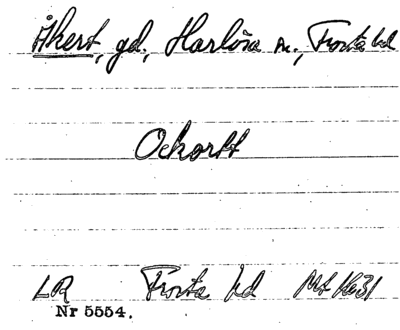 Åkert, gd., Harlösa sn., Frosta hd
Ockortt
LR Frosta hd Mt 1631
Nr 5554.